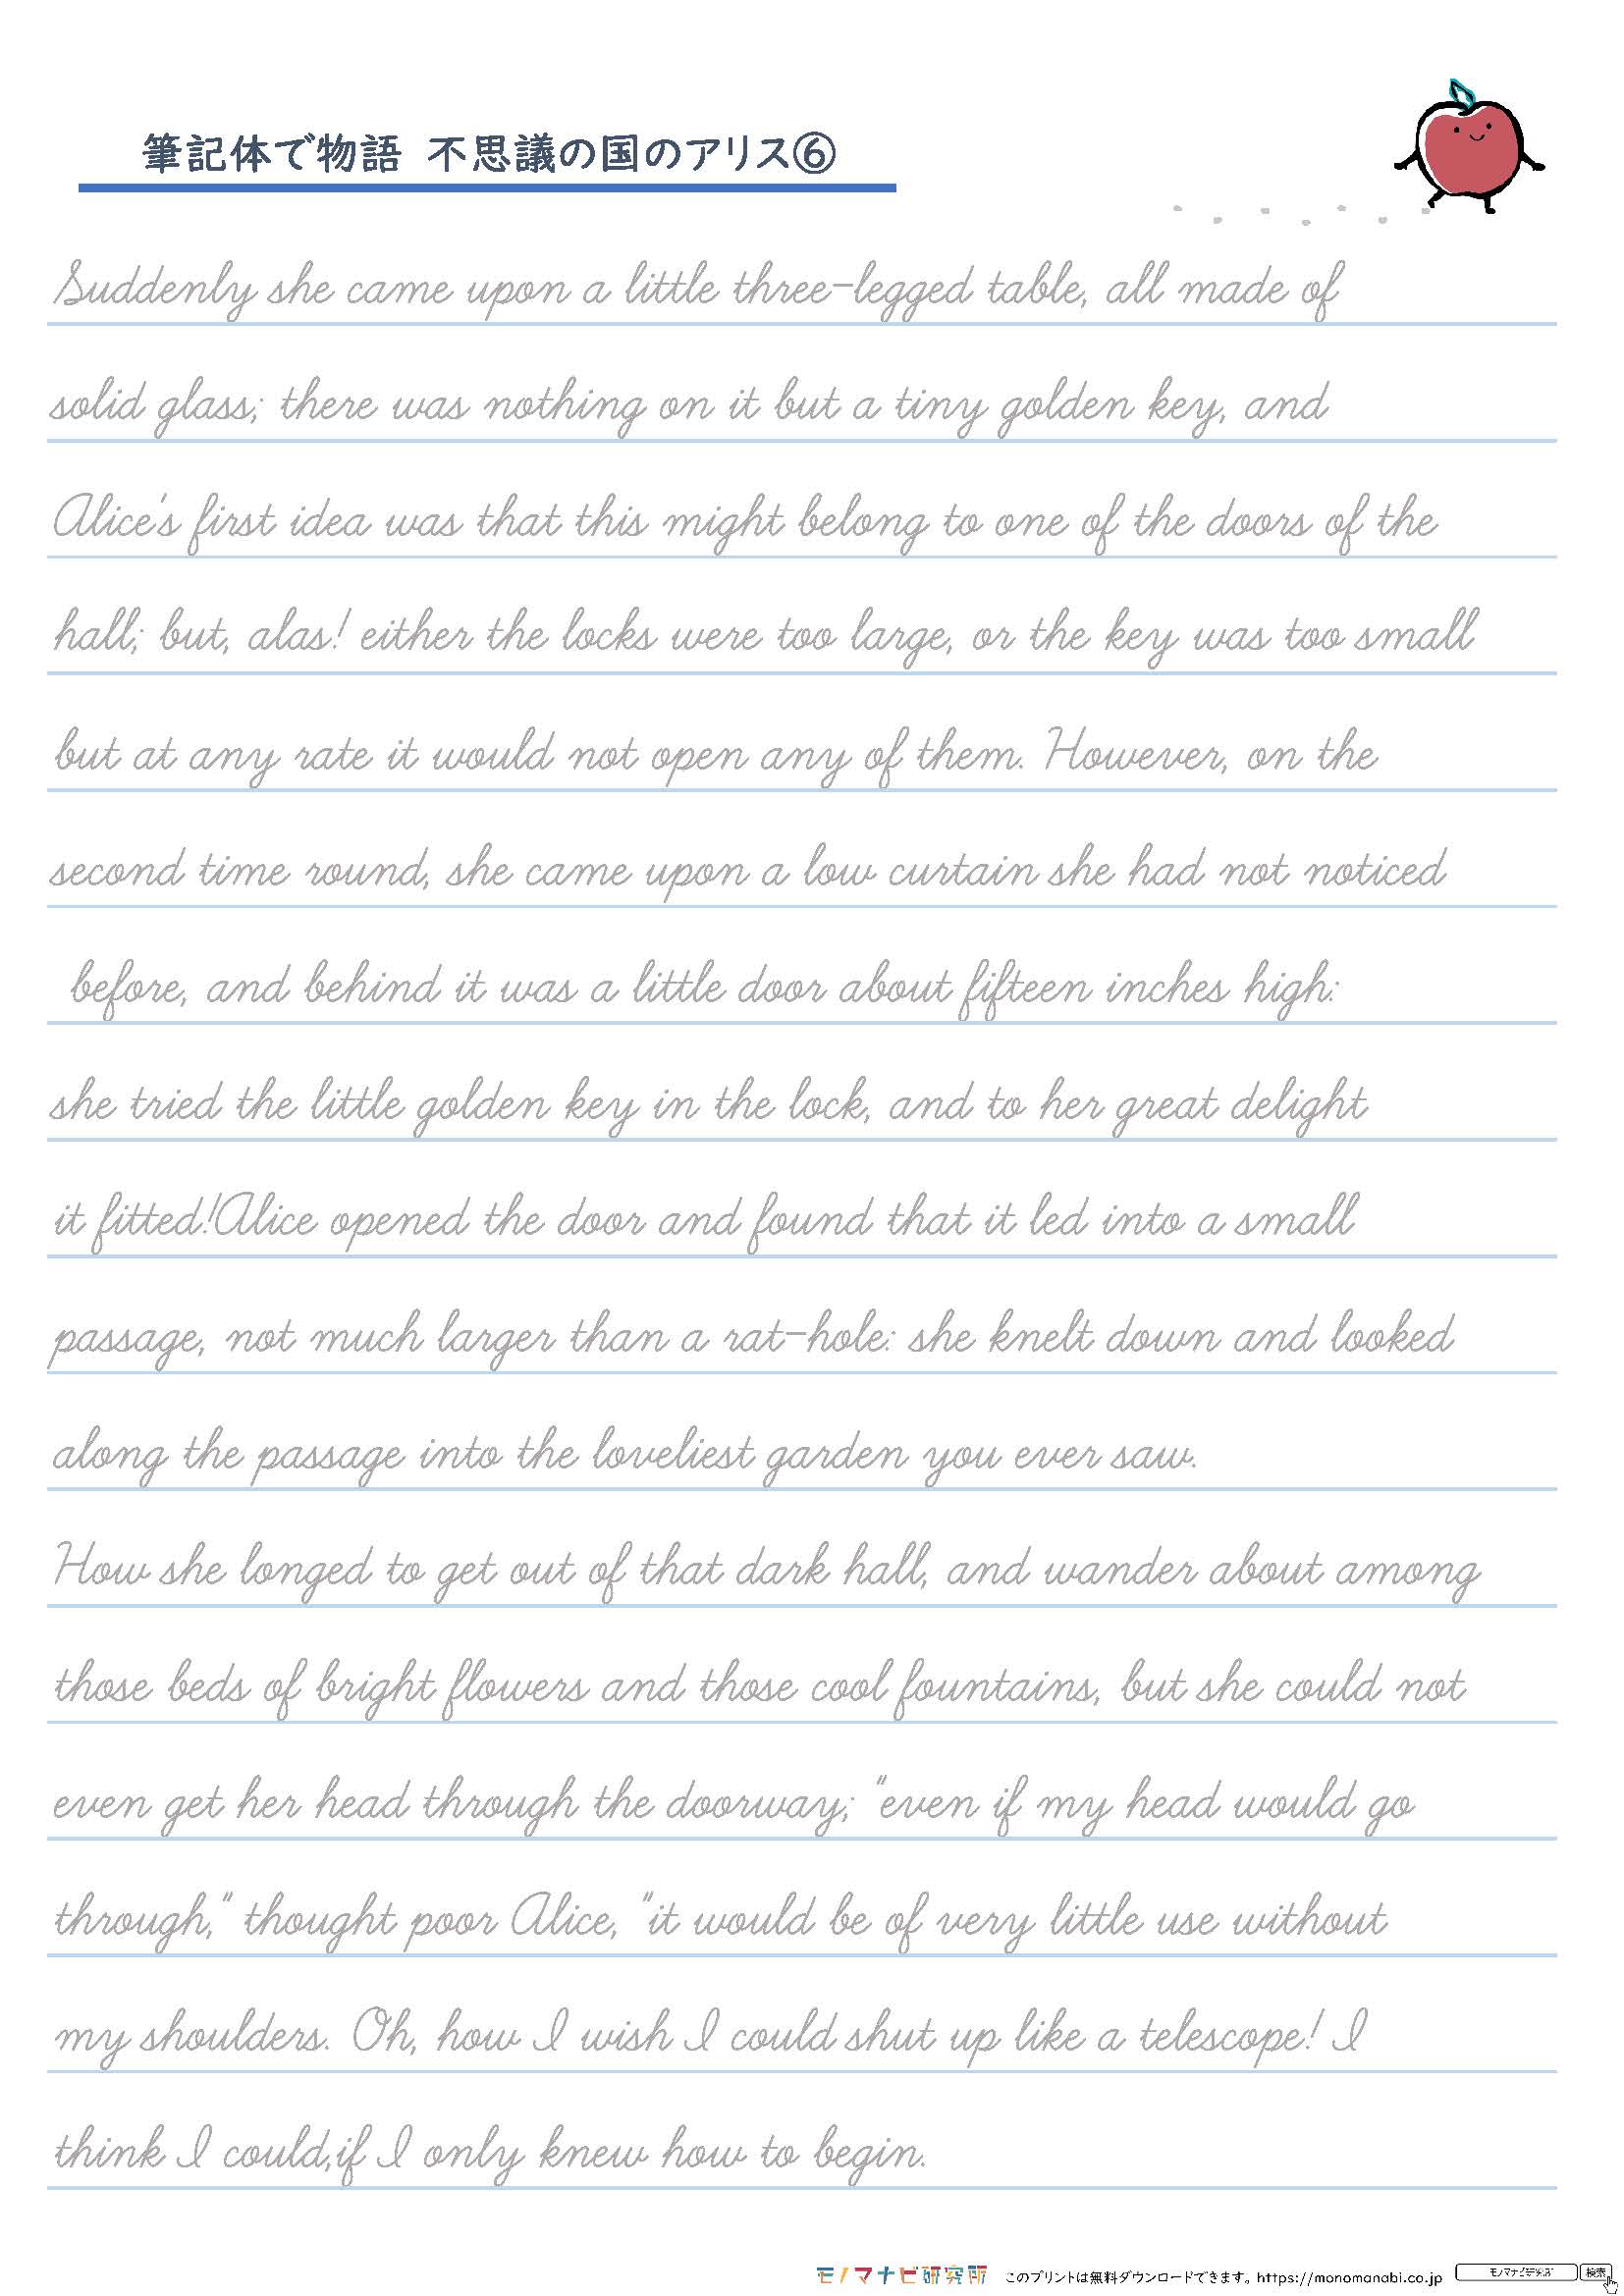 筆記体で物語 不思議の国のアリス⑥
Suddenly she came upon a little three-legged table, all made of
solid glass; there was nothing on it but a tiny golden key, and
Alice's first idea was that this might belong to one of the doors of the
hall; but, alas! either the locks were too large, or the key was too small
but at any rate it would not open any of them. However, on the
second time round, she came upon a low curtain she had not noticed
before, and behind it was a little door about fifteen inches high:
she tried the little golden key in the lock, and to her great delight
it fitted!Alice opened the door and found that it led into a small
passage, not much larger than a rat-hole: she knelt down and looked
along the passage into the loveliest garden you ever saw.
How she longed to get out of that dark hall, and wander about among
those beds of bright flowers and those cool fountains, but she could not
even get her head through the doorway; "even if my head would go
through," thought poor Alice, "it would be of very little use without
my shoulders. Oh, how I wish I could shut up like a telescope! I
think I could,if I only knew how to begin.
モノマナビ研究所 このプリントは無料ダウンロードできます。https://monomanabi.co.jp モノマナビ研究所 検索